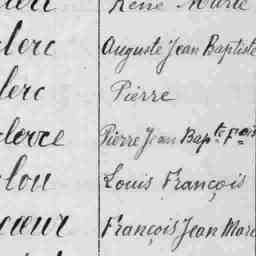 René Marie
clerc Auguste Jean Baptiste
clerc Pierre
clerre Pierre Jean Bapte Fois
lou Louis François
cœur François Jean Marc